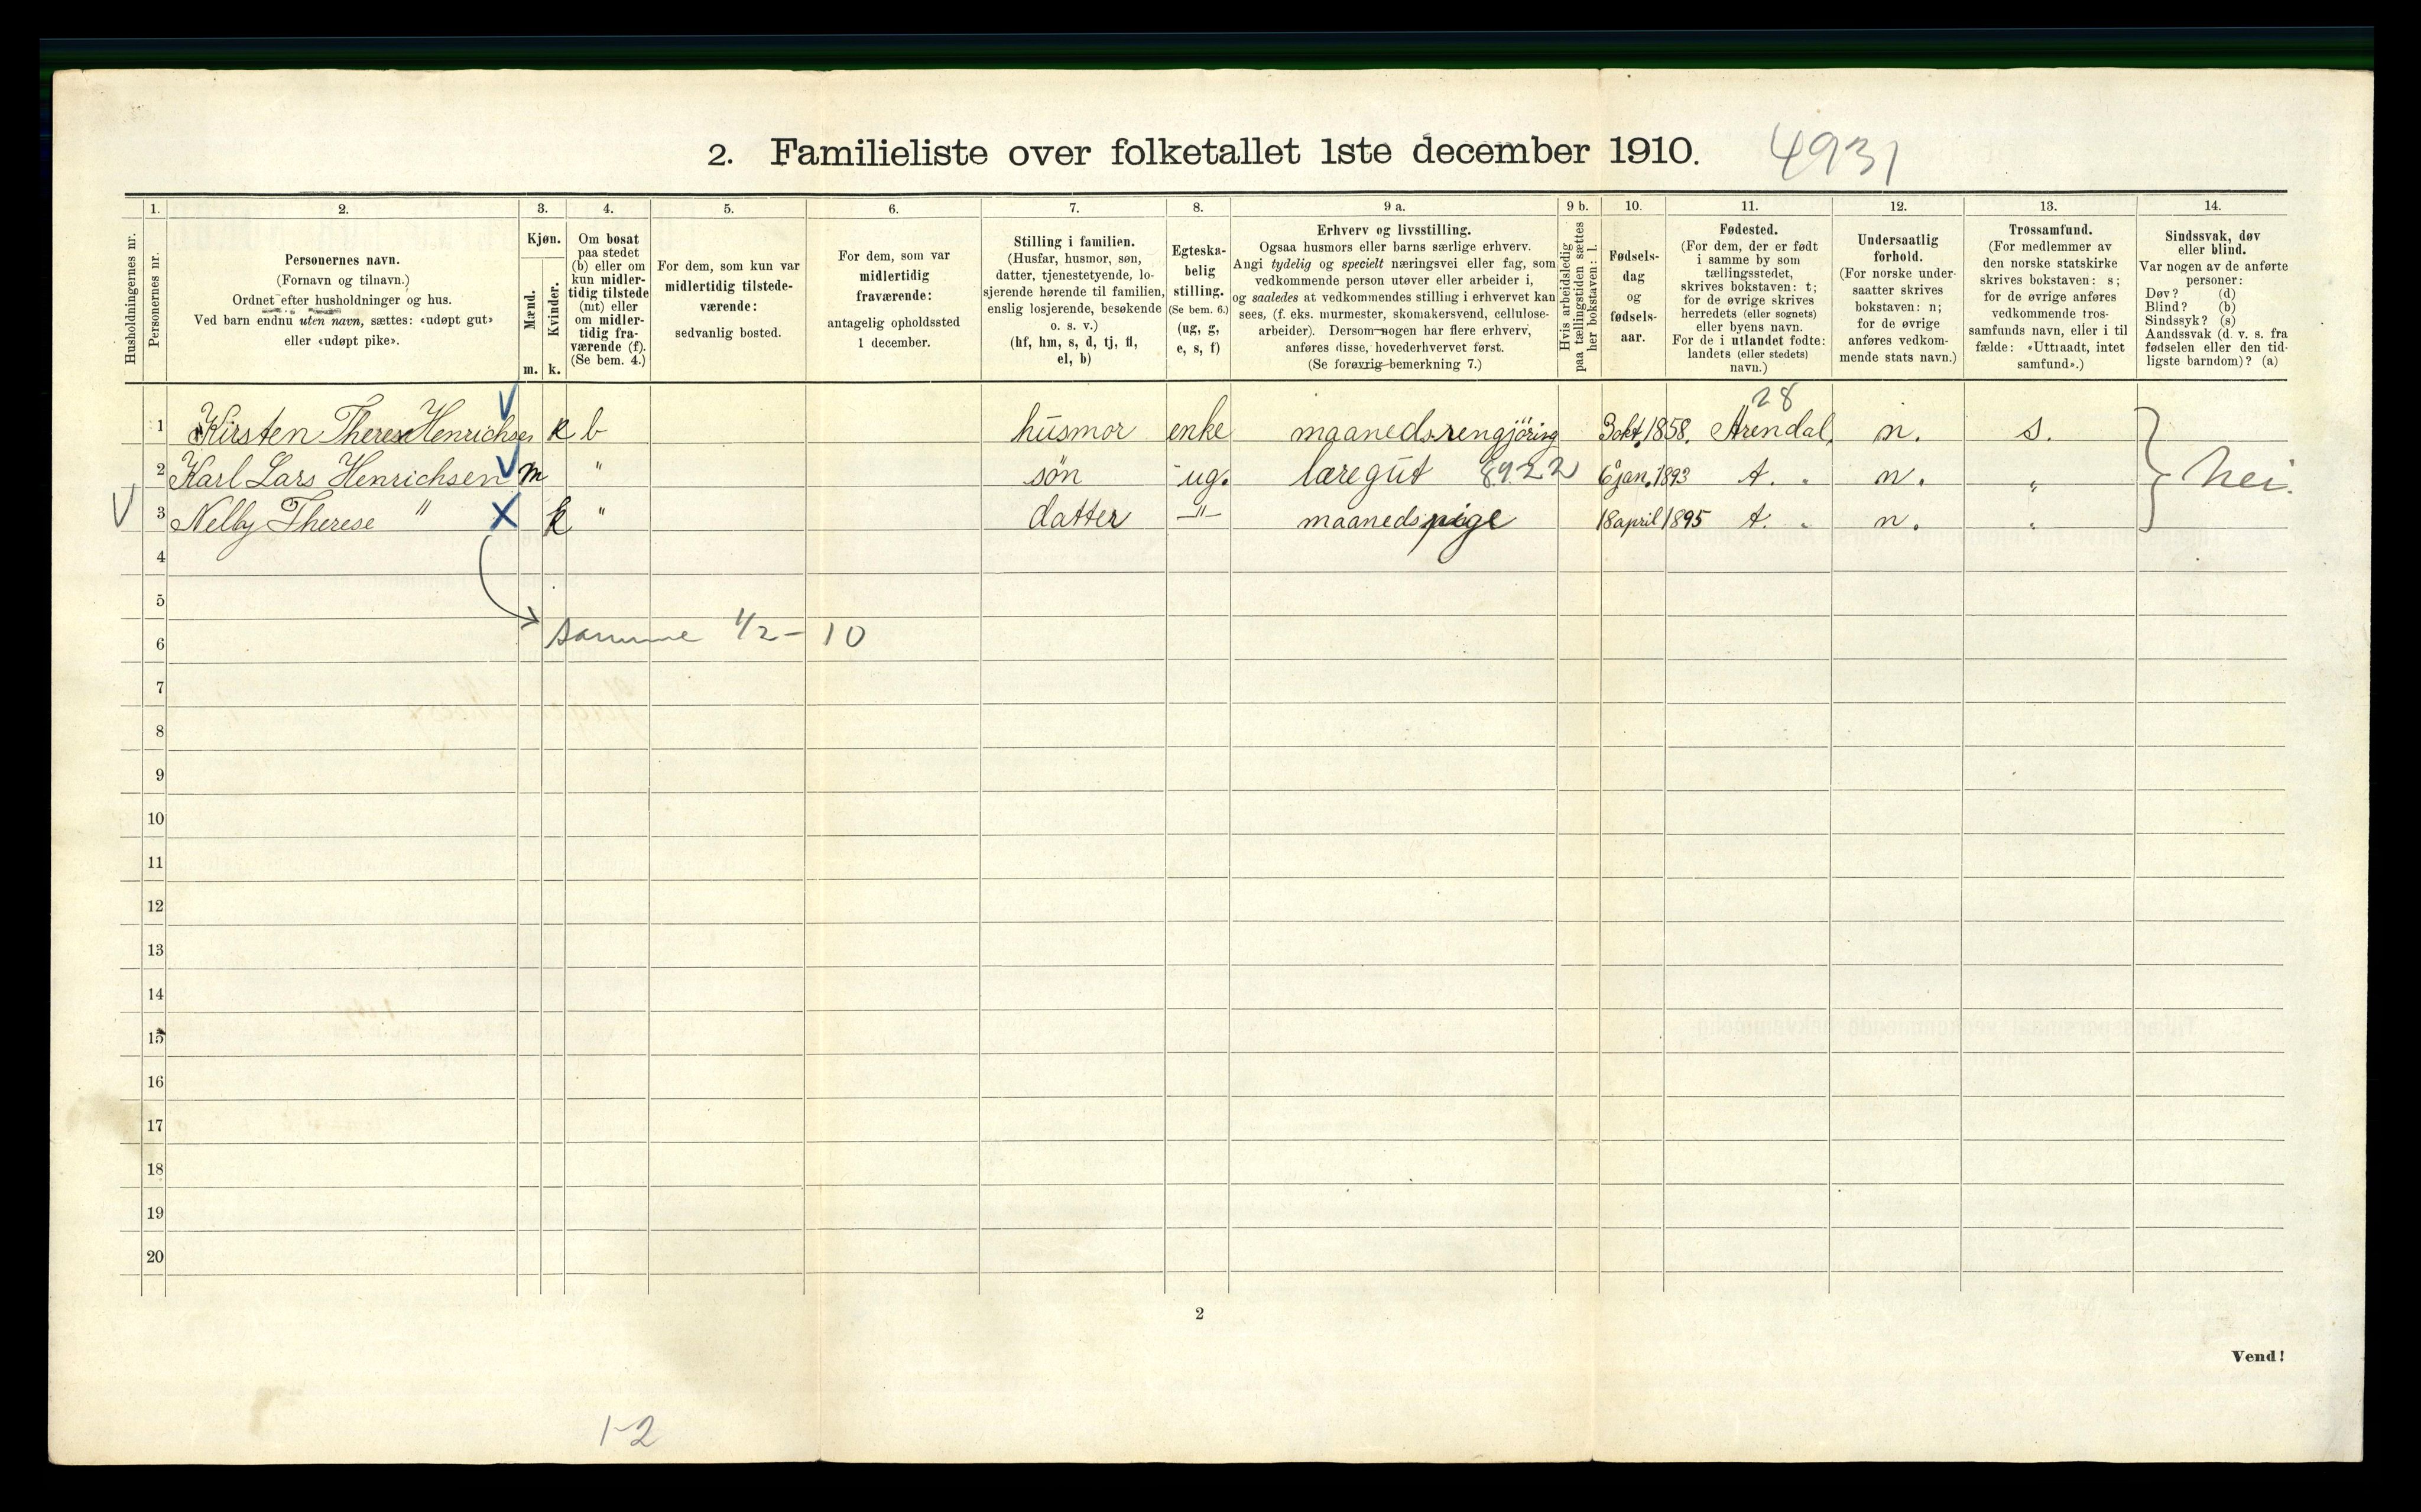 2. Familieliste over folketallet 1ste december 1910. 4931
Husholdningernes nr.
1.
Personernes nr.
2.
Personernes navn.
(Fornavn og tilnavn.)
Ordnet efter husholdninger og hus.
Ved barn endnu uten navn, sættes: «udøpt gut»
eller «udøpt pike».
3.
Kjøn.
Mænd.
Kvinder.
m. k.
4.
Om bosat
paa stedet
(b) eller om
kun midler-
tidig tilstede
(mt) eller
om midler-
tidig fra-
værende (f).
(Se bem. 4.)
5.
For dem, som kun var
midlertidig tilstede-
værende:
sedvanlig bosted.
6.
For dem, som var
midlertidig
fraværende:
antagelig opholdssted
1 december.
7.
Stilling i familien.
(Husfar, husmor, søn,
datter, tjenestetyende, lo-
sjerende hørende til familien,
enslig losjerende, besøkende
o. s. v.)
(hf, hm, s, d, tj, fl,
el, b)
8.
Egteska-
belig
stilling.
(Se bem. 6.)
(ug, g,
e, s, f)
9 a.
Erhverv og livsstilling.
Ogsaa husmors eller barns særlige erhverv.
Angi tydelig og specielt næringsvei eller fag, som
vedkommende person utøver eller arbeider i,
og saaledes at vedkommendes stilling i erhvervet kan
sees, (f. eks. murmester, skomakersvend, cellulose-
arbeider). Dersom nogen har flere erhverv,
anføres disse, hovederhvervet først.
(Se forøvrig bemerkning 7.)
9 b.
Hvis arbeidsledig
paa tællingstiden sættes
her bokstaven: l.
10.
Fødsels-
dag
og
fødsels-
aar.
11.
Fødested.
(For dem, der er født
i samme by som
tællingsstedet,
skrives bokstaven: t;
for de øvrige skrives
herredets (eller sognets)
eller byens navn.
For de i utlandet fødte:
landets (eller stedets)
navn.)
12.
Undersaatlig
forhold.
(For norske under-
saatter skrives
bokstaven: n;
for de øvrige
anføres vedkom-
mende stats navn.)
13.
Trossamfund.
(For medlemmer av
den norske statskirke
skrives bokstaven: s;
for de øvrige anføres
vedkommende tros-
samfunds navn, eller i til
fælde: «Uttraadt, intet
samfund».)
14.
Sindssvak, døv
eller blind.
Var nogen av de anførte
personer:
Døv? (d)
Blind? (b)
Sindssyk? (s)
Aandssvak (d. v. s. fra
fødselen eller den tid-
ligste barndom)? (a)
28
1 Kirsten Therese Henrichsen k b husmor enke maanedsrengjöring 3 okt. 1858. Arendal. n. s.
2 Karl Lars Henrichsen m " søn ug. læregut 8922 6 jan. 1893 A. " n. "
nei.
3 Nelly Therese " k " datter —"— maanedspige 18 april 1895 A. " n. "
4
5
6 samme 1/2 - 10
7
8
9
10
11
12
13
14
15
16
17
18
19
20
2
Vend!
1-2